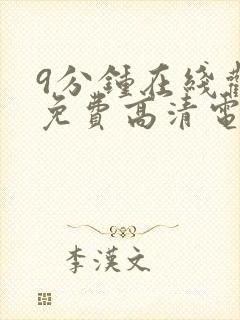 9分鍾在綫觀
免費高清電
李漢文